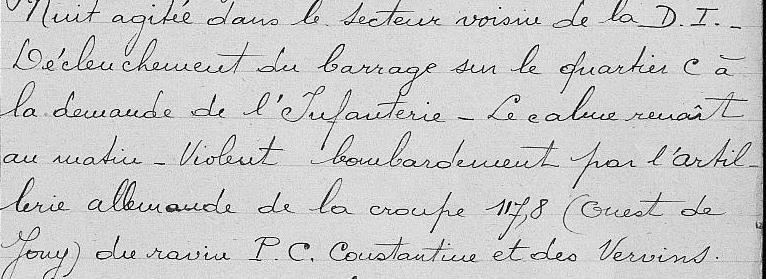 Nuit agitée dans le secteur voisin de la D.I. -
Déclenchement du barrage sur le quartier C à
la demande de l'Infanterie - Le calme renaît
au matin - Violent bombardement par l'artil-
lerie allemande de la croupe 117,8 (Ouest de
Jouy) du ravin P.C. Constantine et des Vervins.